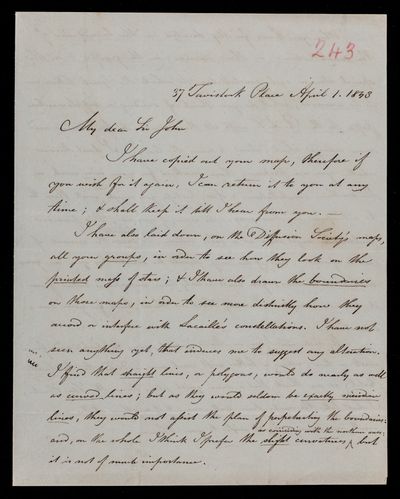 243
37 Tavistock Place April 1. 1843
My dear Sir John
I have copied out your map, therefore if
you wish for it again, I can return it to you at any
time; & shall keep it till I hear from you. —
I have also laid down, on the Diffusion Society's maps,
all your groups, in order to see how they look on the
printed maps of stars; & I have also drawn the boundaries
on those maps, in order to see more distinctly how they
accord or interfere with Lacaille's constellations. I have not
seen anything yet, that induces me to suggest any alteration.
I find that straight lines, or polygons, would do nearly as well
as curved lines; but as they would seldom be exactly
lines, they would not affect the plan of perpetuating the boundaries:
as coinciding with the northern ones;
and, on the whole I think I prefer the slight curvatures, but
it is not of much importance.